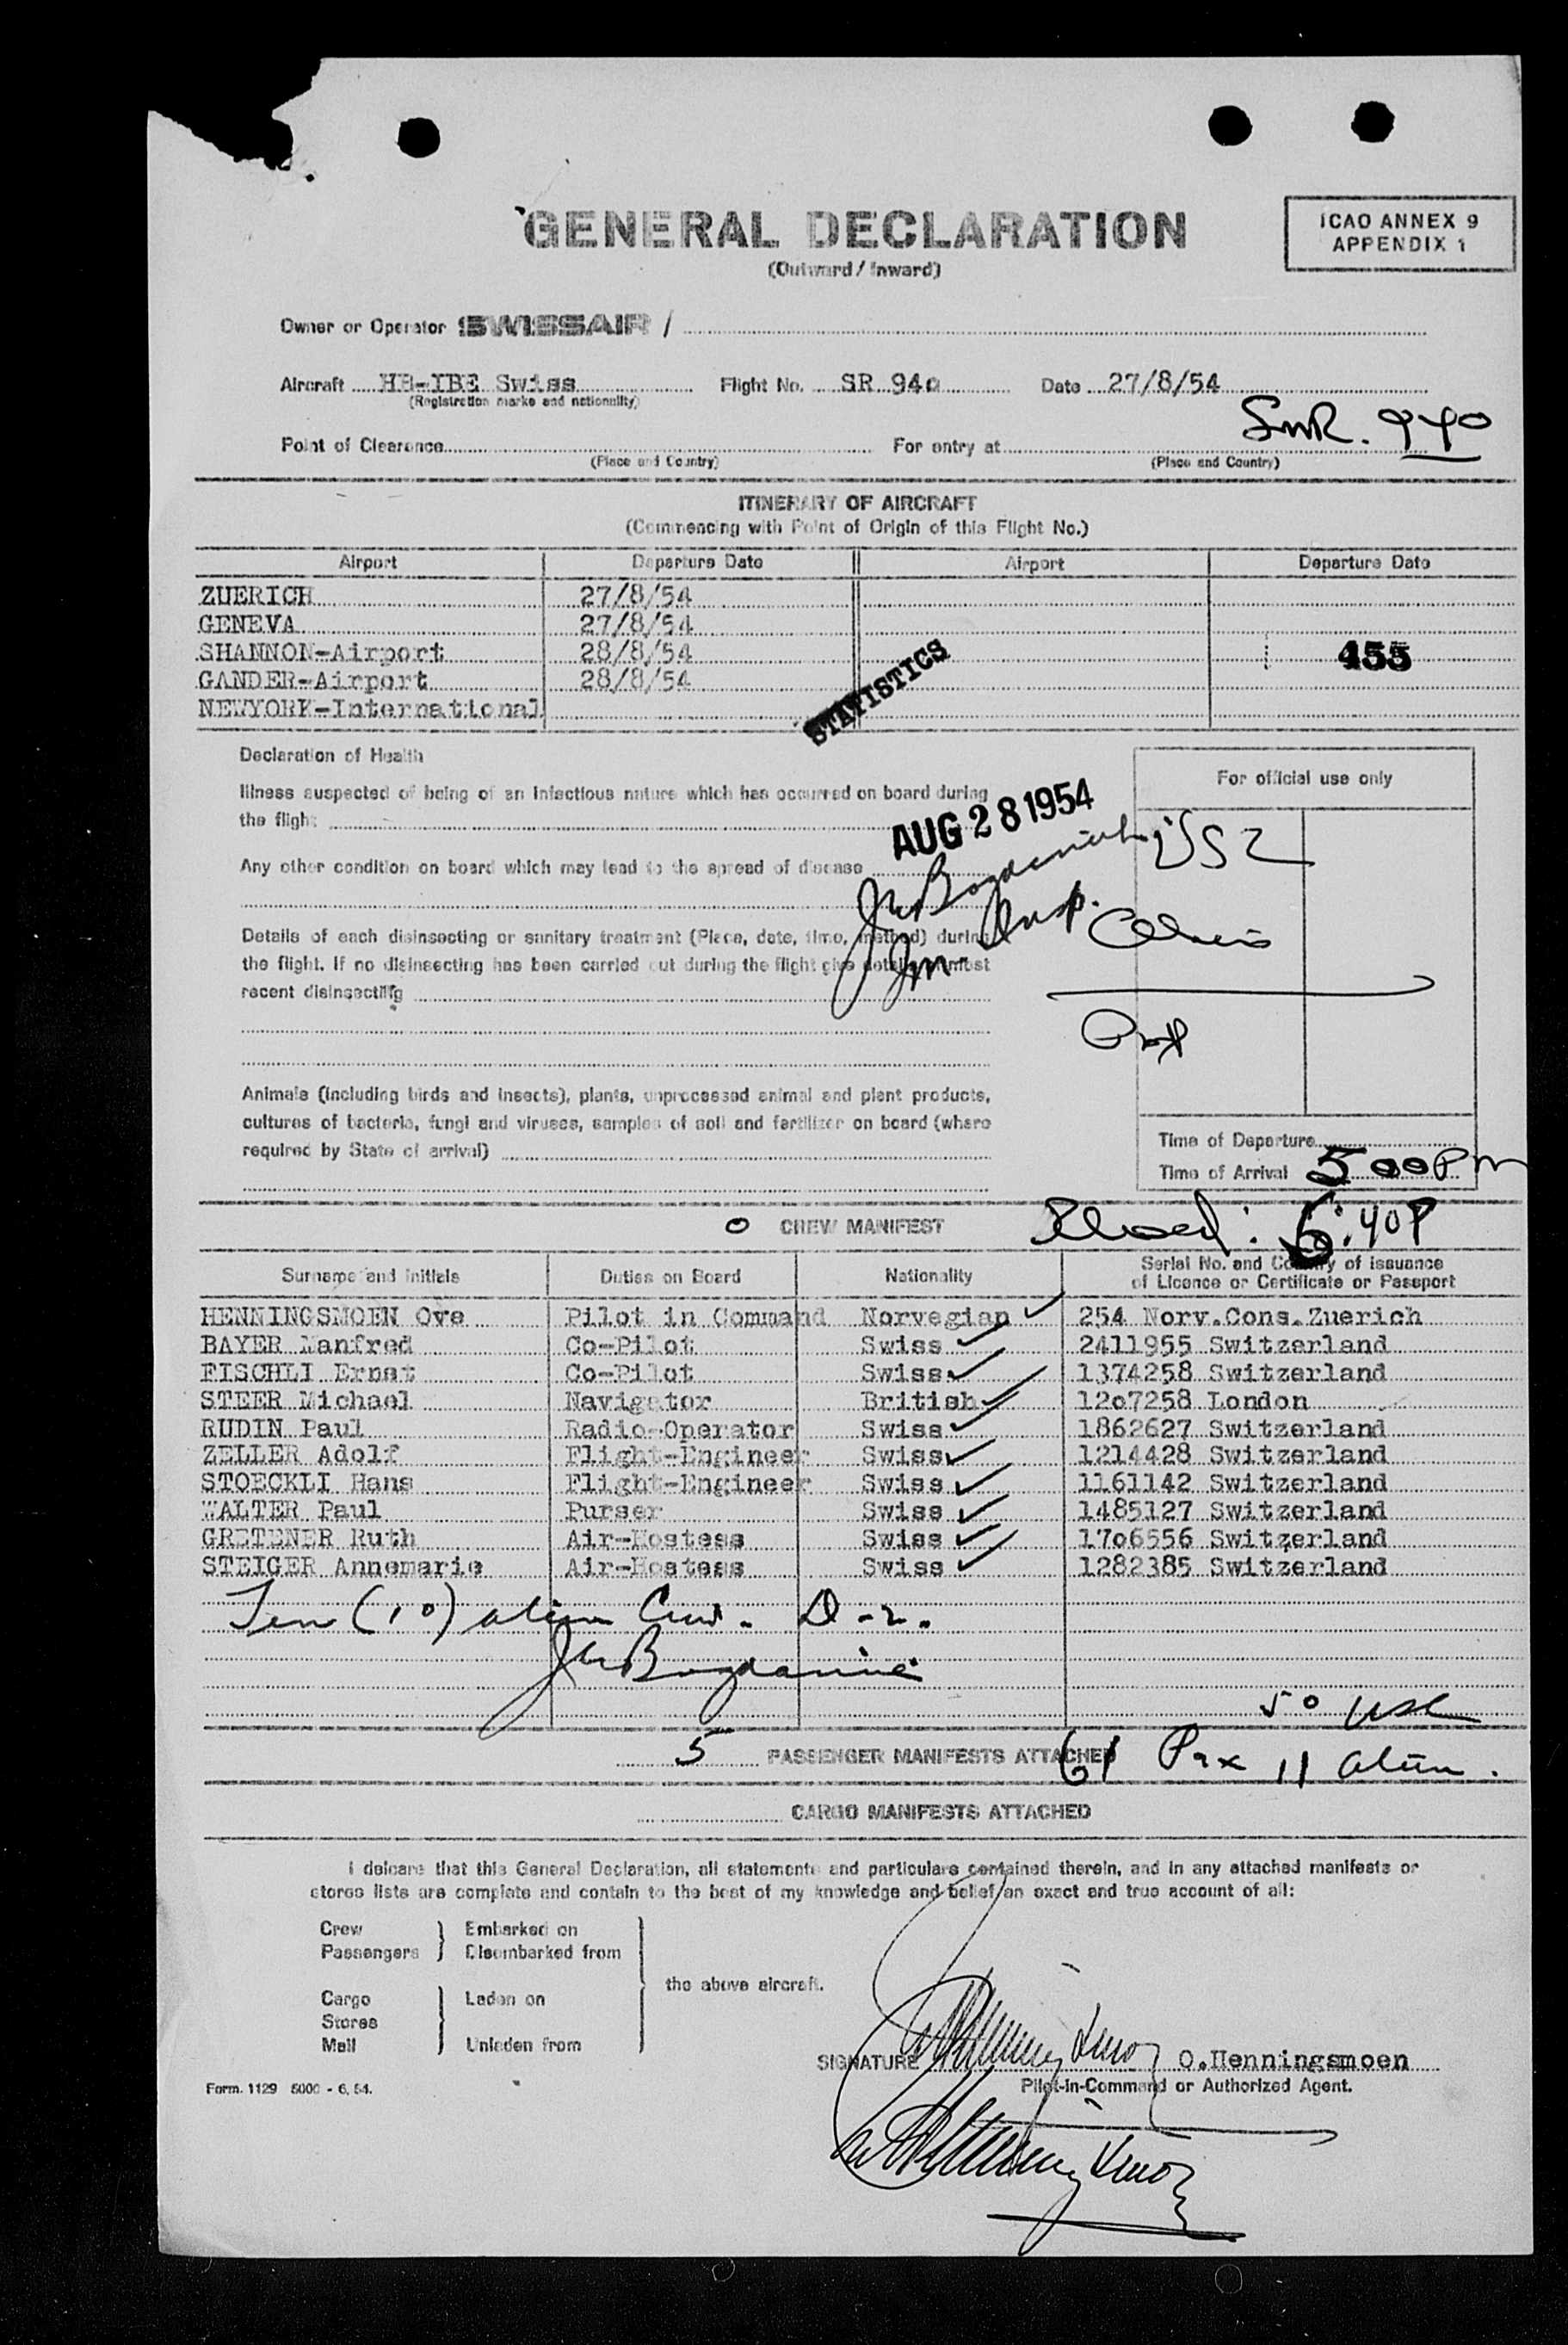 GENERAL DECLARATION
(Outward / Inward)
ICAO ANNEX 9
APPENDIX 1
Owner or Operator SWISSAIR /
Aircraft HB-IBE Swiss Flight No. SR 94o Date 27/8/54
(Registration marks and nationality)
SwR. 940
Point of Clearance For entry at
(Place and Country) (Place and Country)
ITINERARY OF AIRCRAFT
(Commencing with Point of Origin of this Flight No.)
Airport Departure Date Airport Departure Date
ZUERICH 27/8/54
GENEVA 27/8/54
SHANNON-Airport 28/8/54 455
GANDER-Airport 28/8/54
NEWYORK-International
STATISTICS
Declaration of Health
For official use only
Illness suspected of being of an infectious nature which has occurred on board during
the flight
AUG 28 1954
Any other condition on board which may lead to the spread of disease
Details of each disinsecting or sanitary treatment (Place, date, time, method) during
the flight. If no disinsecting has been carried out during the flight give details of most
recent disinsecting
Insp.
Im.
Animals (including birds and insects), plants, unprocessed animal and plant products,
cultures of bacteria, fungi and viruses, samples of soil and fertilizer on board (where
required by State of arrival)
Time of Departure
Time of Arrival 5 00 Pm
Closed: 6:40P
o CREW MANIFEST
Surname and Initials Duties on Board Nationality Serial No. and Country of issuance
of Licence or Certificate or Passport
HENNINGSMOEN Ove Pilot in Command Norvegian 254 Norv.Cons.Zuerich
BAYER Manfred Co-Pilot Swiss 2411955 Switzerland
FISCHLI Ernst Co-Pilot Swiss 1374258 Switzerland
STEER Michael Navigator British 12o7258 London
RUDIN Paul Radio-Operator Swiss 1862627 Switzerland
ZELLER Adolf Flight-Engineer Swiss 1214428 Switzerland
STOECKLI Hans Flight-Engineer Swiss 1161142 Switzerland
WALTER Paul Purser Swiss 1485127 Switzerland
GRETENER Ruth Air-Hostess Swiss 17o6556 Switzerland
STEIGER Annemarie Air-Hostess Swiss 1282385 Switzerland
Ten (10) alien Crew. D-2.
50 USC
5 PASSENGER MANIFESTS ATTACHED 61 Pax 11 alien.
CARGO MANIFESTS ATTACHED
I delcare that this General Declaration, all statements and particulars contained therein, and in any attached manifests or
stores lists are complete and contain to the best of my knowledge and belief an exact and true account of all:
Crew Embarked on
Passengers Disembarked from
the above aircraft.
Cargo Laden on
Stores
Mail Unladen from
SIGNATURE O.Henningsmoen
Pilot-in-Command or Authorized Agent.
Form. 1129 5000 - 6. 54.